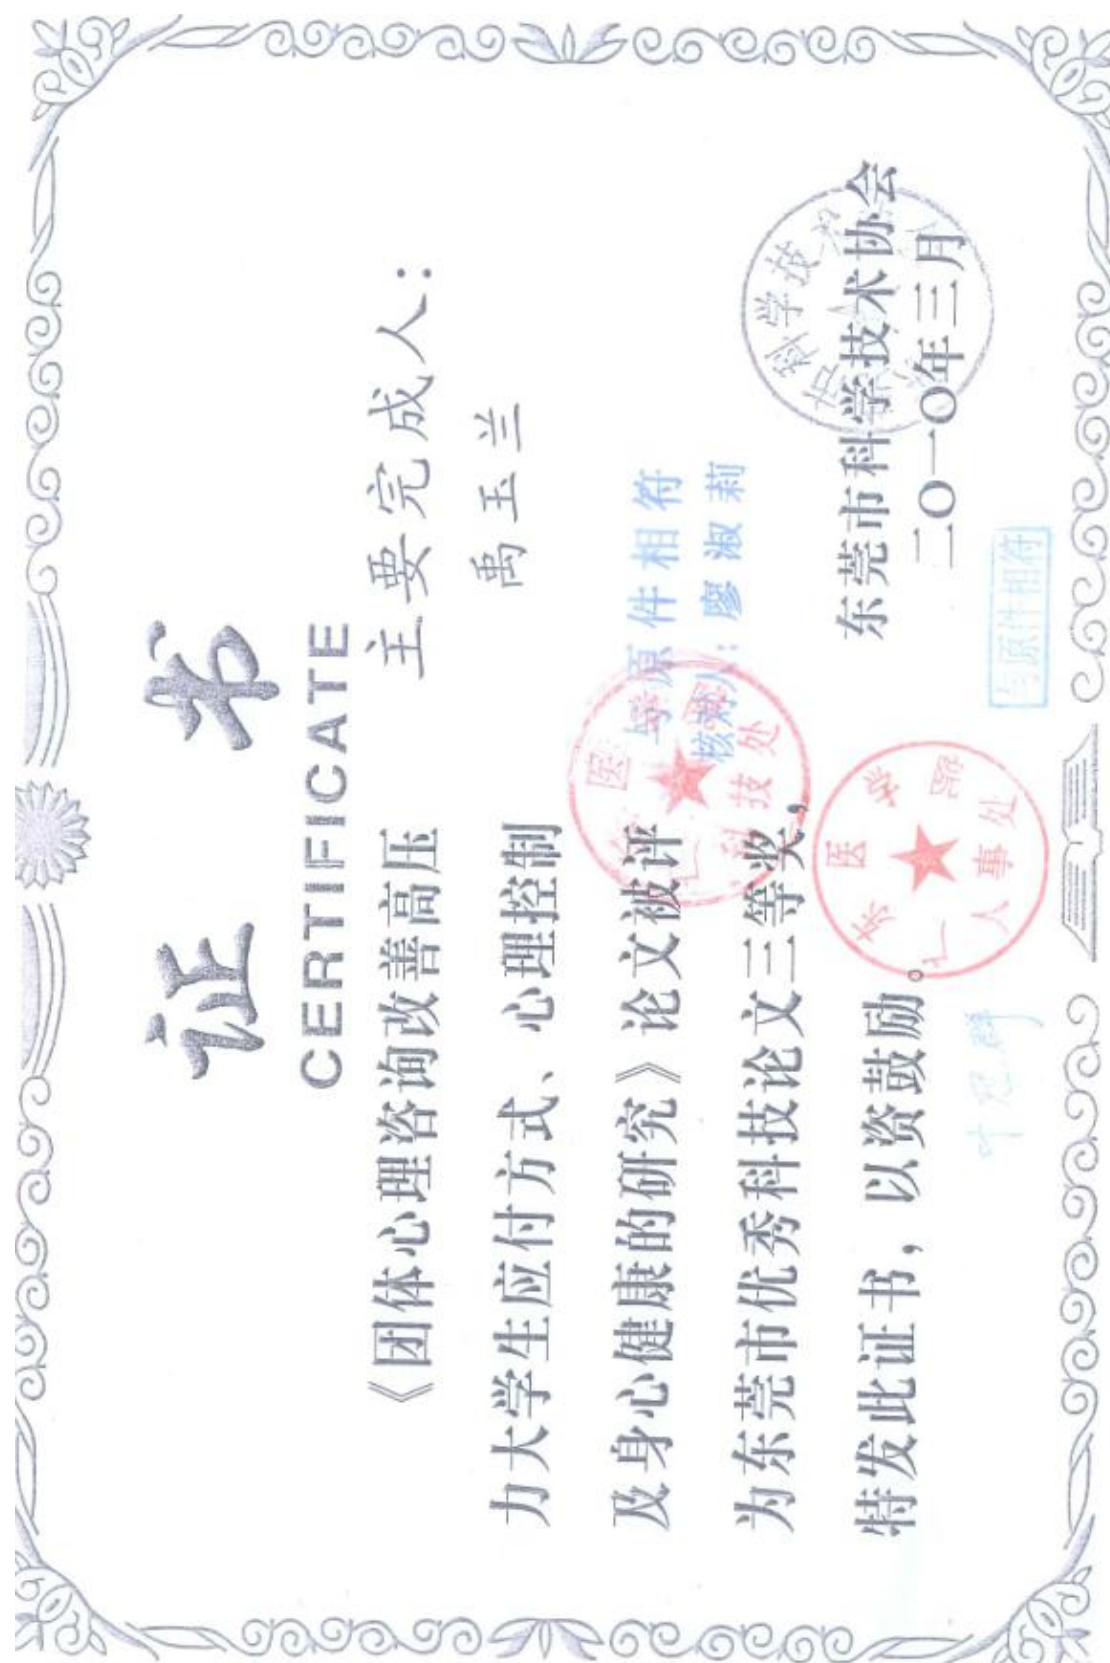 证 书
CERTIFICATE
《团体心理咨询改善高压
力大学生应付方式、心理控制
及身心健康的研究》论文被评
为东莞市优秀科技论文三等奖,
特发此证书，以资鼓励。
主要完成人：
禹玉兰
与原件相符
核对人：廖淑莉
医
科技处
东莞市科学技术协会
二〇一〇年三月
市科学技术
广东医学院
人事处
与原件相符